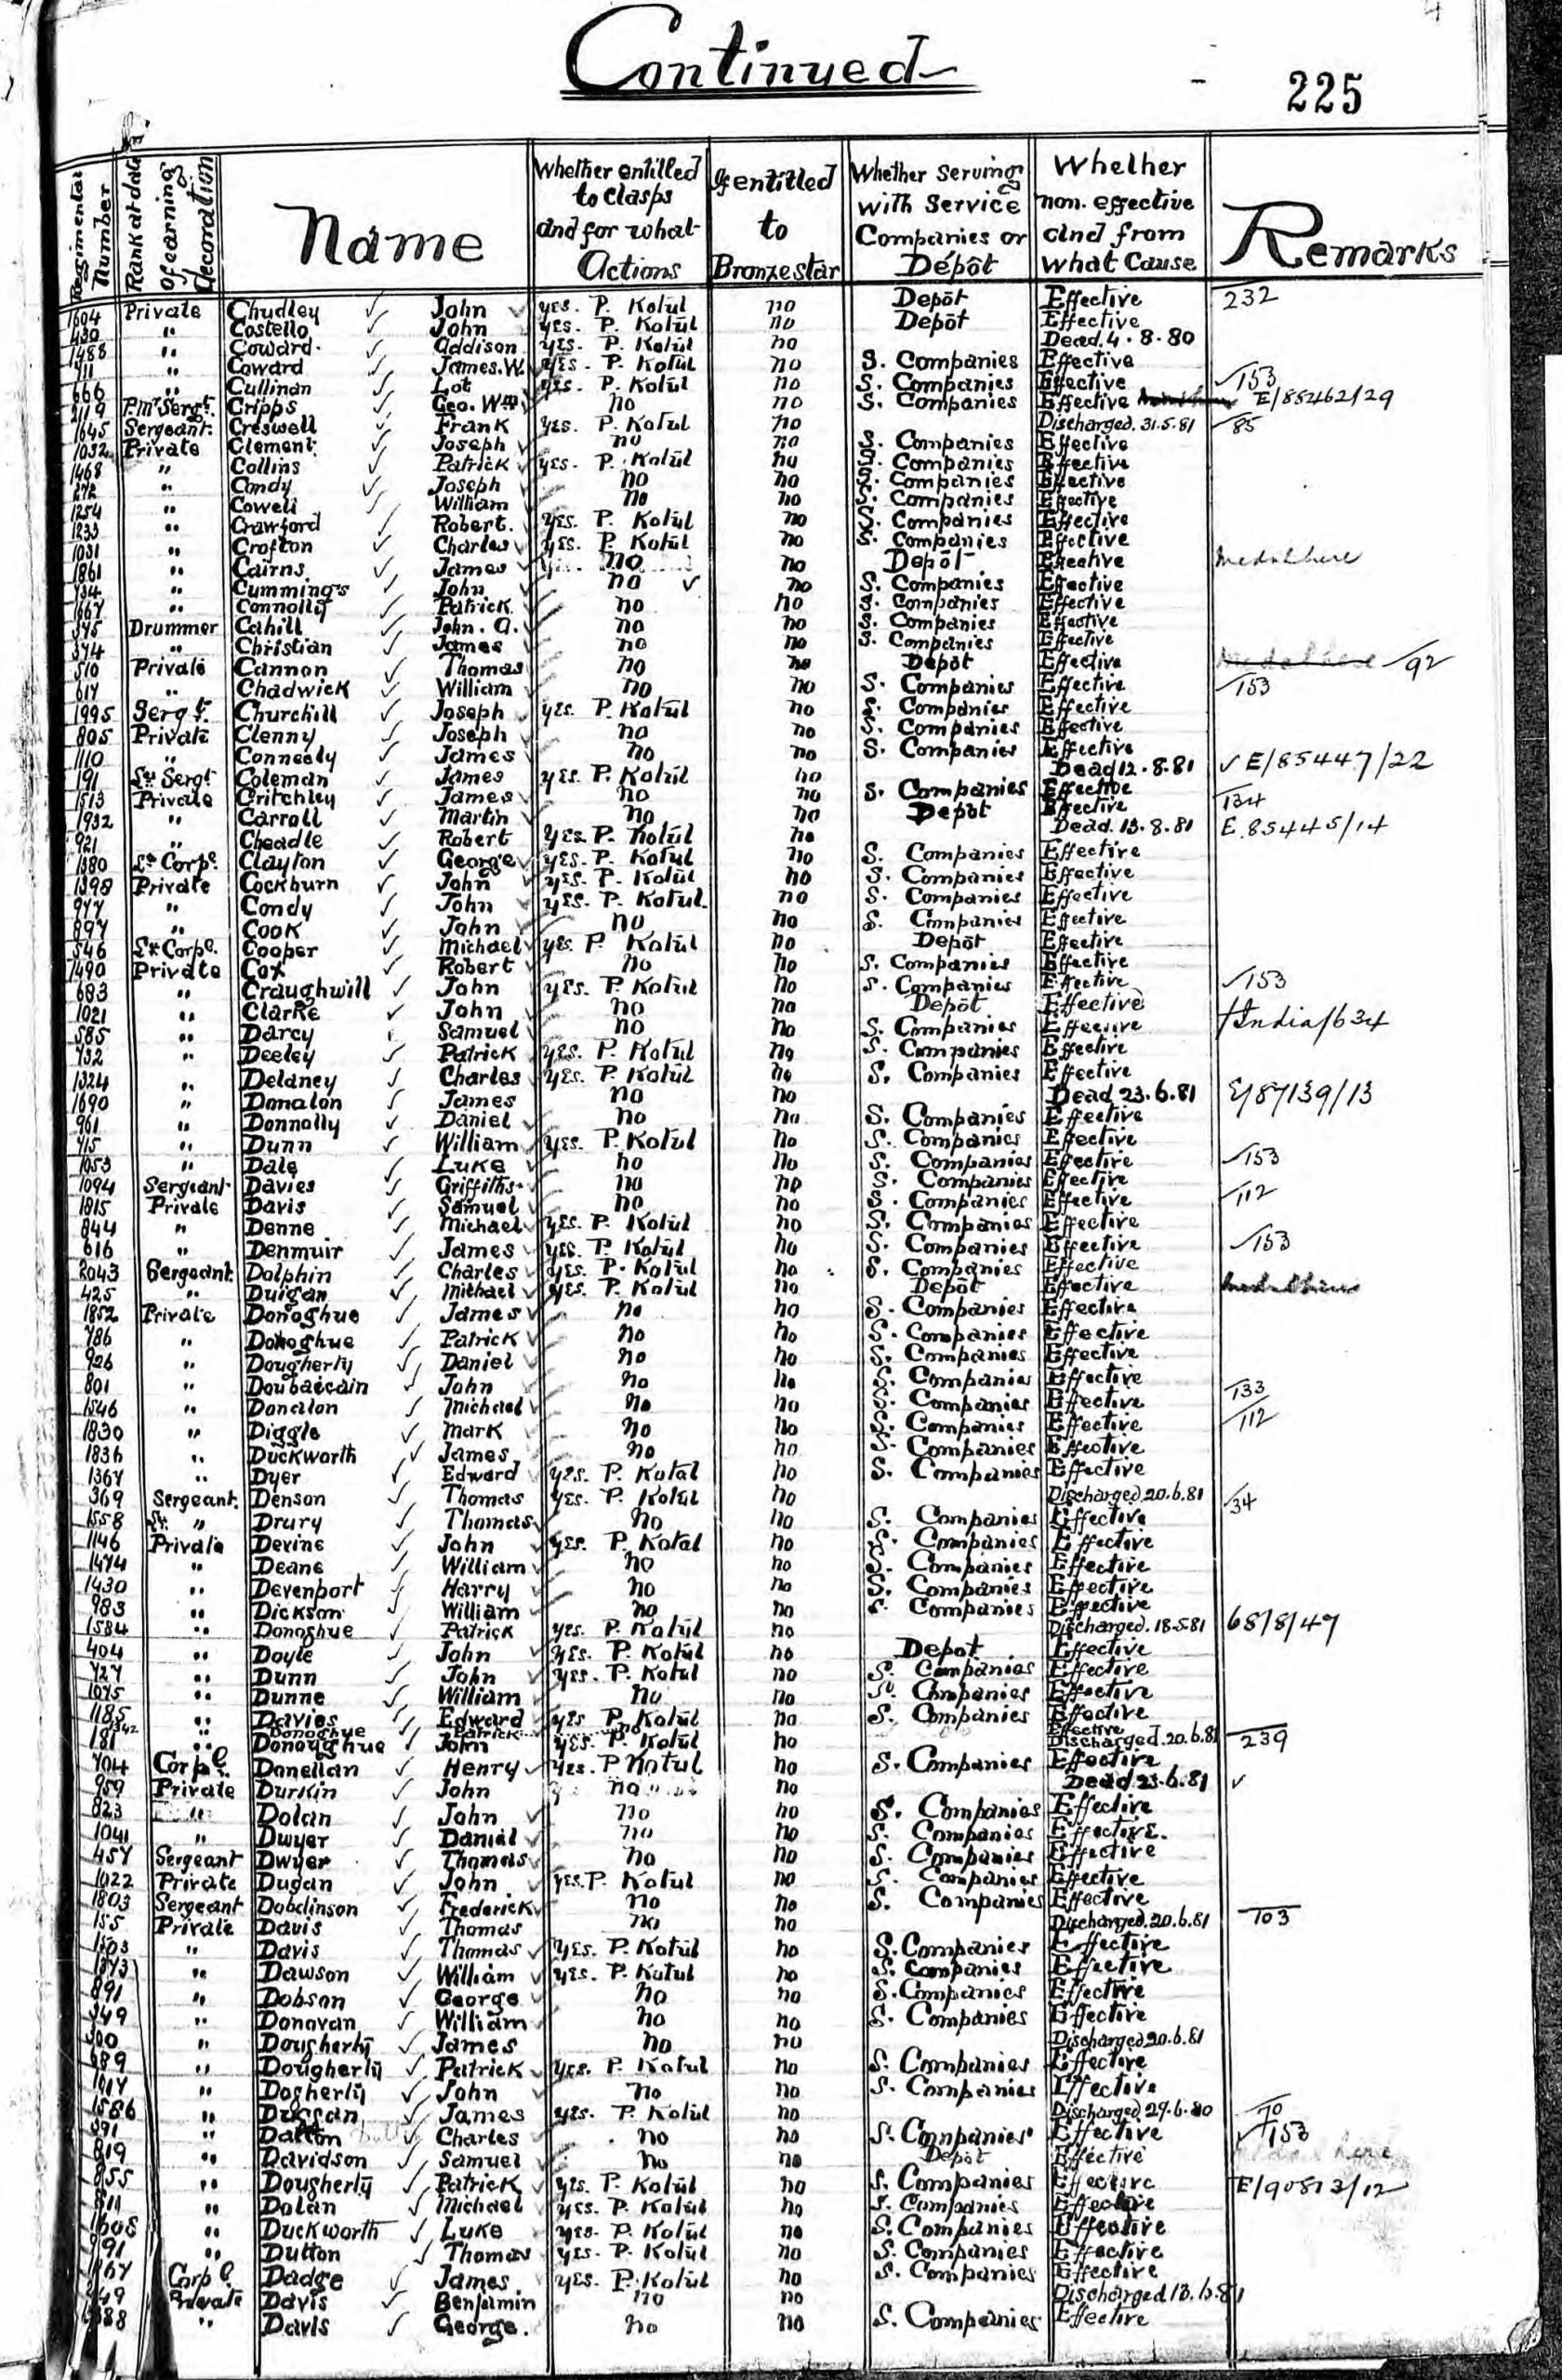 Continued
225
Regimental Number Rank at date of earning decoration Name Whether entitled to Clasps and for what Actions If entitled to Bronze star Whether Serving with Service Companies or Depôt Whether non. effective and from what Cause Remarks
1604 Private Chudley John yes. P. Kotul no Depôt Effective 232
430 " Costello John yes. P. Kotul no Depôt Effective
1488 " Coward Addison yes. P. Kotul no Dead. 4.8.80
411 " Coward James. W. yes. P. Kotul no S. Companies Effective
666 " Cullinan Lot yes. P. Kotul no S. Companies Effective 153
2119 P.Mr Sergt. Cripps Geo. Wm no no S. Companies Effective E/88462/29
1645 Sergeant Creswell Frank yes. P. Kotul no Discharged. 31.5.81 85
1032 Private Clement Joseph no no S. Companies Effective
1468 " Collins Patrick yes. P. Kotul no S. Companies Effective
272 " Condy Joseph no no S. Companies Effective
1254 " Cowell William no no S. Companies Effective
1233 " Crawford Robert. yes. P. Kotul no S. Companies Effective
1031 " Crofton Charles yes. P. Kotul no S. Companies Effective
1861 " Cairns James no no Depôt Effective medal here
734 " Cummings John no no S. Companies Effective
1667 " Connolly Patrick no no S. Companies Effective
375 Drummer Cahill John. A. no no S. Companies Effective
374 " Christian James no no S. Companies Effective
510 Private Cannon Thomas no no Depôt Effective medal here 92
617 " Chadwick William no no S. Companies Effective 153
1995 Sergt. Churchill Joseph yes. P. Kotul no S. Companies Effective
805 Private Clenny Joseph no no S. Companies Effective
1110 " Conneely James no no S. Companies Effective
191 Sergt. Coleman James yes. P. Kotul no Dead 12.8.81 E/85447/22
1513 Private Critchley James no no S. Companies Effective 134
1932 " Carroll Martin no no Depôt Effective
921 " Cheadle Robert yes P. Kotul no Dead. 13.8.81 E.85445/14
1380 Le Corpl. Clayton George yes. P. Kotul no S. Companies Effective
1398 Private Cockburn John yes. P. Kotul no S. Companies Effective
977 " Condy John yes. P. Kotul. no S. Companies Effective
897 " Cook John no no S. Companies Effective
546 Le Corpl. Cooper Michael yes. P. Kotul no Depôt Effective
1490 Private Cox Robert no no S. Companies Effective
683 " Craughwill John yes. P. Kotul no S. Companies Effective 153
1021 " Clarke John no no Depôt Effective
585 " Darcy Samuel no no S. Companies Effective India/634
732 " Deeley Patrick yes. P. Kotul no S. Companies Effective
1324 " Delaney Charles yes. P. Kotul no S. Companies Effective
1690 " Donalon James no no Dead 23.6.81 E/87139/13
961 " Donnolly Daniel no no S. Companies Effective
715 " Dunn William yes. P. Kotul no S. Companies Effective
1053 " Dale Luke no no S. Companies Effective 153
1094 Sergeant Davies Griffiths no no S. Companies Effective
1815 Private Davis Samuel no no S. Companies Effective 112
844 " Denne Michael yes. P. Kotul no S. Companies Effective
616 " Denmuir James yes. P. Kotul no S. Companies Effective 153
2043 Sergeant. Dolphin Charles yes. P. Kotul no S. Companies Effective
425 " Duigan Michael yes. P. Kotul no Depôt Effective
1852 Private Donoghue James no no S. Companies Effective
786 " Donoghue Patrick no no S. Companies Effective
926 " Dougherty Daniel no no S. Companies Effective
801 " Doubaicain John no no S. Companies Effective
1546 " Donalon Michael no no S. Companies Effective 133
1830 " Diggle Mark no no S. Companies Effective 112
1836 " Duckworth James no no S. Companies Effective
1367 " Dyer Edward yes. P. Kotal no S. Companies Effective
369 Sergeant. Denson Thomas yes. P. Kotul no Discharged. 20.6.81 34
1558 " Drury Thomas no no S. Companies Effective
1146 Private Devine John yes. P. Kotal no S. Companies Effective
1474 " Deane William no no S. Companies Effective
1430 " Devenport Harry no no S. Companies Effective
983 " Dickson William no no S. Companies Effective
1584 " Donoghue Patrick yes. P. Kotul no Discharged. 18.5.81 68/8/47
404 " Doyle John yes. P. Kotul no Depot Effective
727 " Dunn John yes. P. Kotul no S. Companies Effective
1075 " Dunne William no no S. Companies Effective
1185 " Davies Edward yes P. Kotul no S. Companies Effective
1342 " Donoghue Patrick no Effective
181 " Donoughue John yes. P. Kotul no Discharged. 20.6.81 239
704 Corpl. Donellan Henry yes. P Kotul no S. Companies Effective
959 Private Durkin John no no Dead 23.6.81
823 " Dolan John no no S. Companies Effective
1041 " Dwyer Daniel no no S. Companies Effective.
457 Sergeant Dwyer Thomas no no S. Companies Effective
1022 Private Dugan John yes. P. Kotul no S. Companies Effective
1803 Sergeant Dobdinson Frederick no no S. Companies Effective
155 Private Davis Thomas no no Discharged. 20.6.81 103
1503 " Davis Thomas yes. P. Kotul no S. Companies Effective
1373 " Dawson William yes. P. Kotul no S. Companies Effective
891 " Dobson George no no S. Companies Effective
349 " Donovan William no no S. Companies Effective
300 " Dougherty James no no Discharged 20.6.81
689 " Dougherty Patrick yes. P. Kotul no S. Companies Effective
1017 " Dogherty John no no S. Companies Effective
1586 " Duggan James yes. P. Kotul no Discharged 29.6.80 70
391 " Dalton Charles no no S. Companies Effective 153
819 " Davidson Samuel no no Depôt Effective
855 " Dougherty Patrick yes. P. Kotul no S. Companies Effective E/90813/12
811 " Dolan Michael yes. P. Kotul no S. Companies Effective
1608 " Duckworth Luke yes. P. Kotul no S. Companies Effective
991 " Dutton Thomas yes. P. Kotul no S. Companies Effective
Corpl. Dadge James yes. P. Kotul no S. Companies Effective
Private Davis Benjamin no no Discharged 13.6.81
" Davis George. no no S. Companies Effective